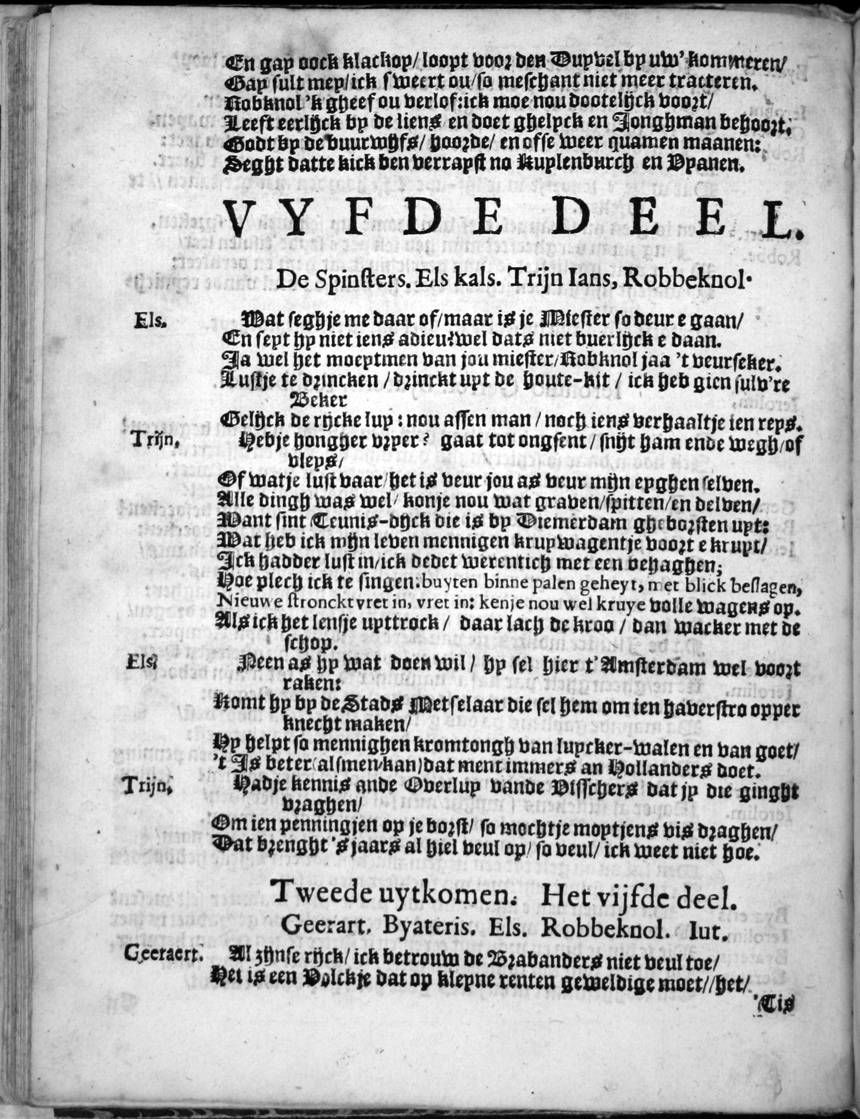 En gay oock klackop/ loopt voor den Duyvel by uw' kommeren/
Gay sult mey/ ick sweert ou/ so meschant niet meer tracteren.
Robknol 'k gheef ou verlof: ick moe nou dootelijck voort/
Leeft eerlijck by de liens en doet ghelyck en Jonghman behoort.
Godt by de buurwijfs/ hoorde/ en ofse weer quamen maanen:
Seght datte kick ben verrayst no Kuylenburch en Vyanen.
VYFDE DEEL.
De Spinsters. Els kals. Trijn Ians, Robbeknol.
Els. Wat seghje me daar of/ maar is je Miester so deur e gaan/
En seyt hy niet iens adieu? wel dats niet buerlijck e daan.
Ja wel het moeytmen van jou miester/ Robknol jaa 't veurseker.
Lustje te drincken/ drinckt uyt de houte-kit/ ick heb gien sulv're
Beker
Gelijck de rijcke luy: nou assen man/ noch iens verhaaltje ien reys.
Trijn. Hebje hongher vryer? gaat tot ongsent/ snijt ham ende wegh/ of
vleys/
Of watje lust vaar/ het is veur jou as veur mijn eyghen selven.
Alle dingh was wel/ konje nou wat graven/ spitten/ en delven/
Want sint Teunis-dijck die is by Diemerdam gheborsten uyt:
Wat heb ick mijn leven mennigen kruywagentje voort e kruyt/
Ick hadder lust in/ ick dedet werentich met een behaghen;
Hoe plech ick te singen: buyten binne palen geheyt, met blick beslagen,
Nieuwe stronckt vret in, vret in: kenje nou wel kruye volle wagens op.
Als ick het lensje uyttrock/ daar lach de kroo/ dan wacker met de
schop.
Els. Neen as hy wat doen wil/ hy sel hier t'Amsterdam wel voort
raken:
Komt hy by de Stads Metselaar die sel hem om ien haverstro opper
knecht maken/
Hy helpt so mennighen kromtongh van luycker-walen en van goet/
't Is beter (alsmen kan) dat ment immers an Hollanders doet.
Trijn. Hadje kennis ande Overluy vande Visschers dat jy die ginght
vraghen/
Om ien penningjen op je borst/ so mochtje moytjens vis draghen/
Dat brenght 's jaars al hiel veul op/ so veul/ ick weet niet hoe.
Tweede uytkomen. Het vijfde deel.
Geerart. Byateris. Els. Robbeknol. Iut.
Geeraert. Al zijnse rijck/ ick betrouw de Brabanders niet veul toe/
Het is een Volckje dat op kleyne renten geweldige moet// het/
'Tis